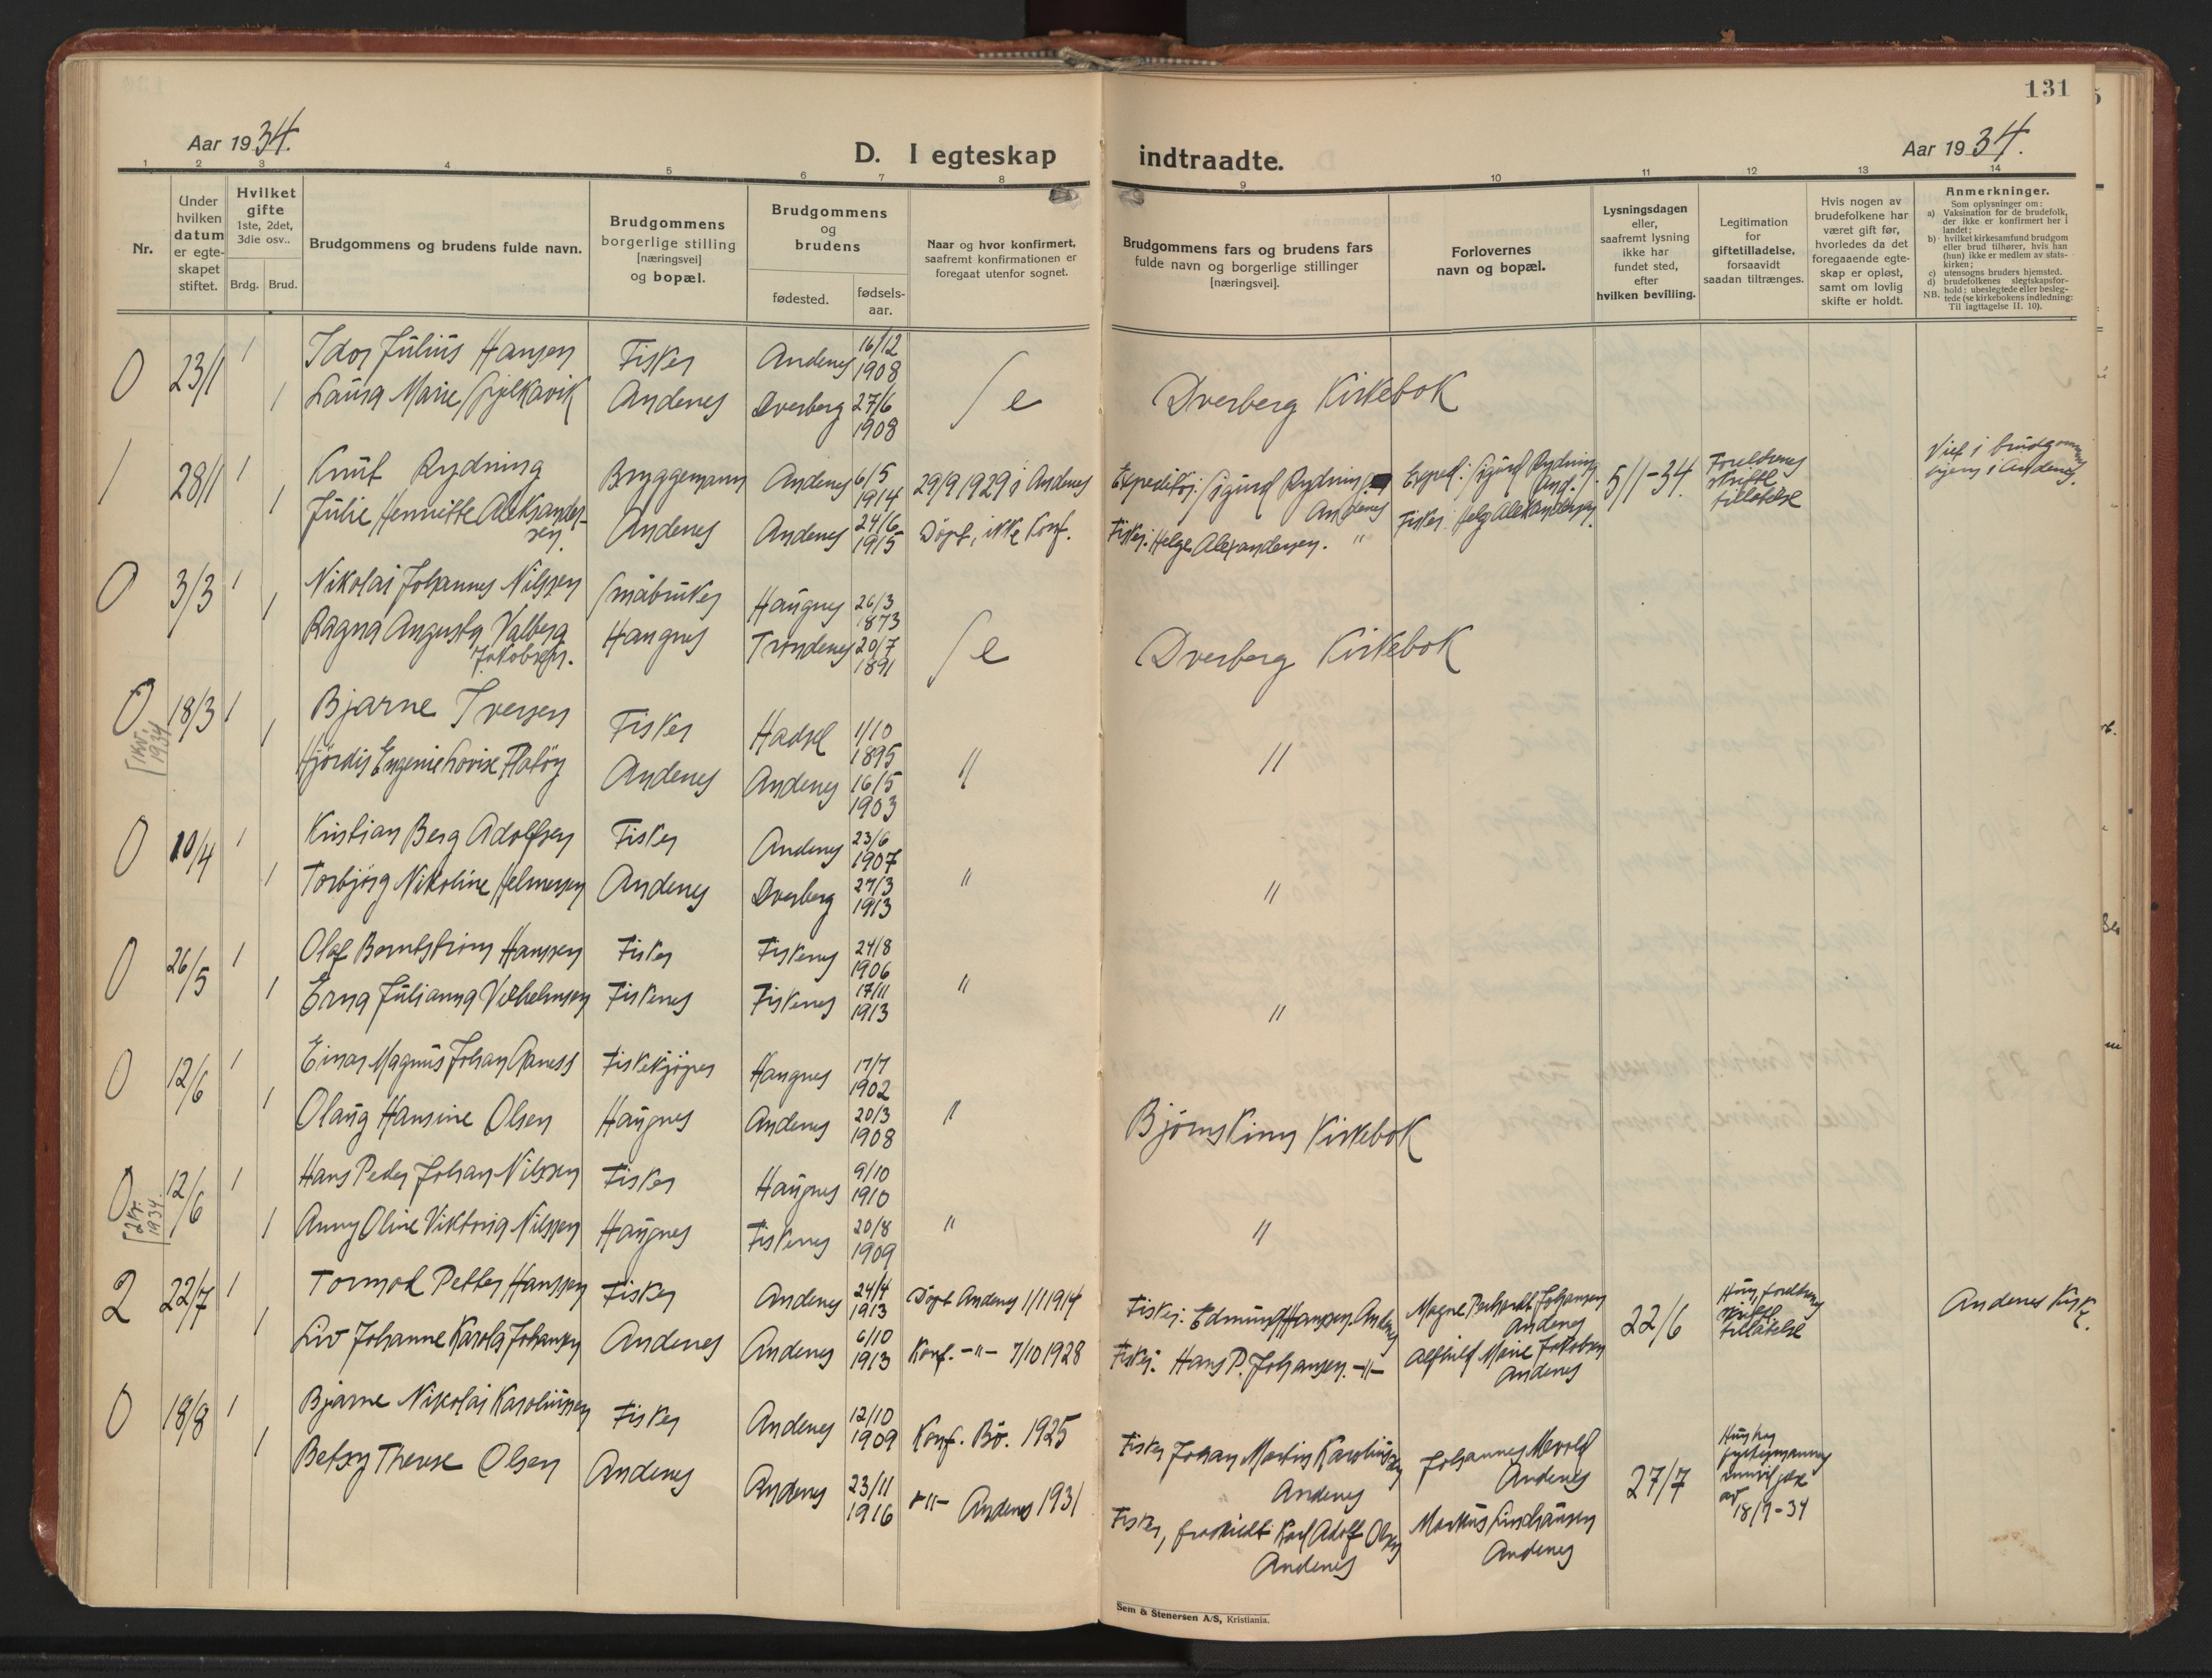 131
Aar 1934.
D. I egteskap indtraadte.
Aar 1934.
1 2 3 4 5 6 7 8 9 10 11 12 13 14
Nr.
Under hvilken datum er egte-skapet stiftet.
Hvilket gifte 1ste, 2det, 3die osv..
Brdg. Brud.
Brudgommens og brudens fulde navn.
Brudgommens borgerlige stilling [næringsvei] og bopæl.
Brudgommens og brudens
fødested.
fødsels-aar.
Naar og hvor konfirmert, saafremt konfirmationen er foregaat utenfor sognet.
Brudgommens fars og brudens fars fulde navn og borgerlige stillinger [næringsvei].
Forlovernes navn og bopæl.
Lysningsdagen eller, saafremt lysning ikke har fundet sted, efter hvilken bevilling.
Legitimation for giftetilladelse, forsaavidt saadan tiltrænges.
Hvis nogen av brudefolkene har været gift før, hvorledes da det foregaaende egte-skap er opløst, samt om lovlig skifte er holdt.
Anmerkninger.
Som oplysninger om:
a) Vaksination for de brudefolk, der ikke er konfirmert her i landet;
b) hvilket kirkesamfund brudgom eller brud tilhører, hvis han (hun) ikke er medlem av stats-kirken;
c) utensogns bruders hjemsted.
d) brudefolkenes slegtskapsfor-hold: ubeslegtede eller besleg-tede (se kirkebokens indledning:
NB. Til iagttagelse II. 10).
0 23/1 1 Idor Julius Hansen Fisker Andenes 16/12 1908
1 Laura Marie Andenes Dverberg 27/6 1908 Se Dverberg Kirkebok
1 28/1 1 Knut Rydning Bryggemann Andenes 6/5 1914 29/9 1929 i Andenes Expeditør: Sigurd Rydning Andenes Exped: Sigurd Rydning And. 5/1-34. Foreldrenes skriftl tillatelse Viet i brudgommens hjem i Andenes.
1 Julie Henriette Aleksander-sen. Andenes Andenes 24/6 1915 Døpt, ikke Konf. Fisker: Helge Alexandersen. " Fisker Helg Alexandersen
0 3/3 1 Nikolai Johannes Nilssen Småbruker Haugnes 26/3 1873
1 Ragna Augusta Valberg Jakobsen. Haugnes Trondenes 20/7 1891 Se Dverberg Kirkebok
0 18/3 1 Bjarne Iversen Fisker Hadsel 1/10 1895
1 Kv. 1934
1 Hjördis Eugenie Lovise Flatöy Andenes Andenes 16/5 1903 " "
0 10/4 1 Kristian Berg Adolfsen Fisker Andenes 23/6 1907
1 Torbjörg Nikoline Helmersen Andenes Dverberg 27/3 1913 " "
0 26/5 1 Olaf Berntstrøm Hanssen Fisker Fiskenes 24/8 1906
1 Erna Julianna Vilhelmsen Fiskenes Fiskenes 17/11 1913 " "
0 12/6 1 Einar Magnus Johan Aaness Fiskekjøper Haugnes 17/7 1902
1 Olaug Hansine Olsen Haugnes Andenes 20/3 1908 " Björnskinn Kirkebok
0 12/6 1 Hans Peder Johan Nilssen Fisker Haugnes 9/10 1910
2 Kv. 1934
1 Anny Oline Viktoria Nilssen Haugnes Fiskenes 20/8 1909 " "
2 22/7 1 Tormod Petter Hanssen Fisker Andenes 24/4 1913 Døpt Andenes 1/1 1914 Fisker: Edmund Hanssen. Andenes Magne Johansen Andenes 22/6 Hun, foreldrenes skriftl tillatelse Andenes Kirk.
1 Liv Johanne Karola Johansen Andenes Andenes 6/10 1913 Konf. -"- 7/10 1928 Fisker: Hans P. Johansen. -"- Alfhild Marie Jakobsen Andenes
0 18/8 1 Bjarne Nikolai Karoliussen Fisker Andenes 12/10 1909 Konf. Bö. 1925 Fisker Johan Martin Karoliussen Andenes Johannes Andenes 27/7 Hun har fylkesmannens av 18/7-34
1 Betsy Therese Olsen Andenes Andenes 23/11 1916 -"- Andenes 1931 Fisker, fraskilt Karl Adolf Olsen Andenes Markus Lindhausen Andenes
Sem & Stenersen A/S, Kristiania.